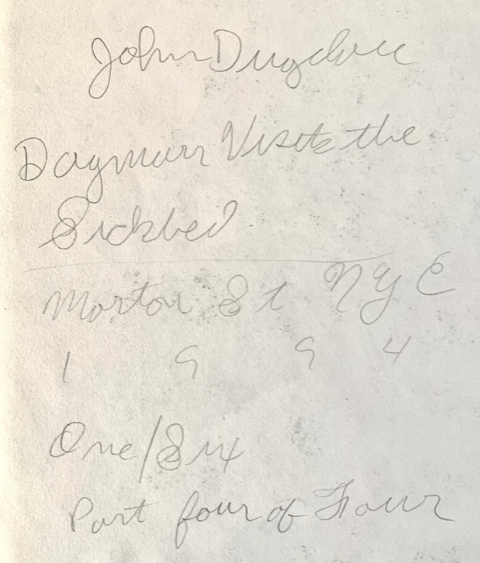 John Dugdale
Daymarr Visits the
Sickbed
Morton St NYC
1 9 9 4
One/Six
Part four of Four